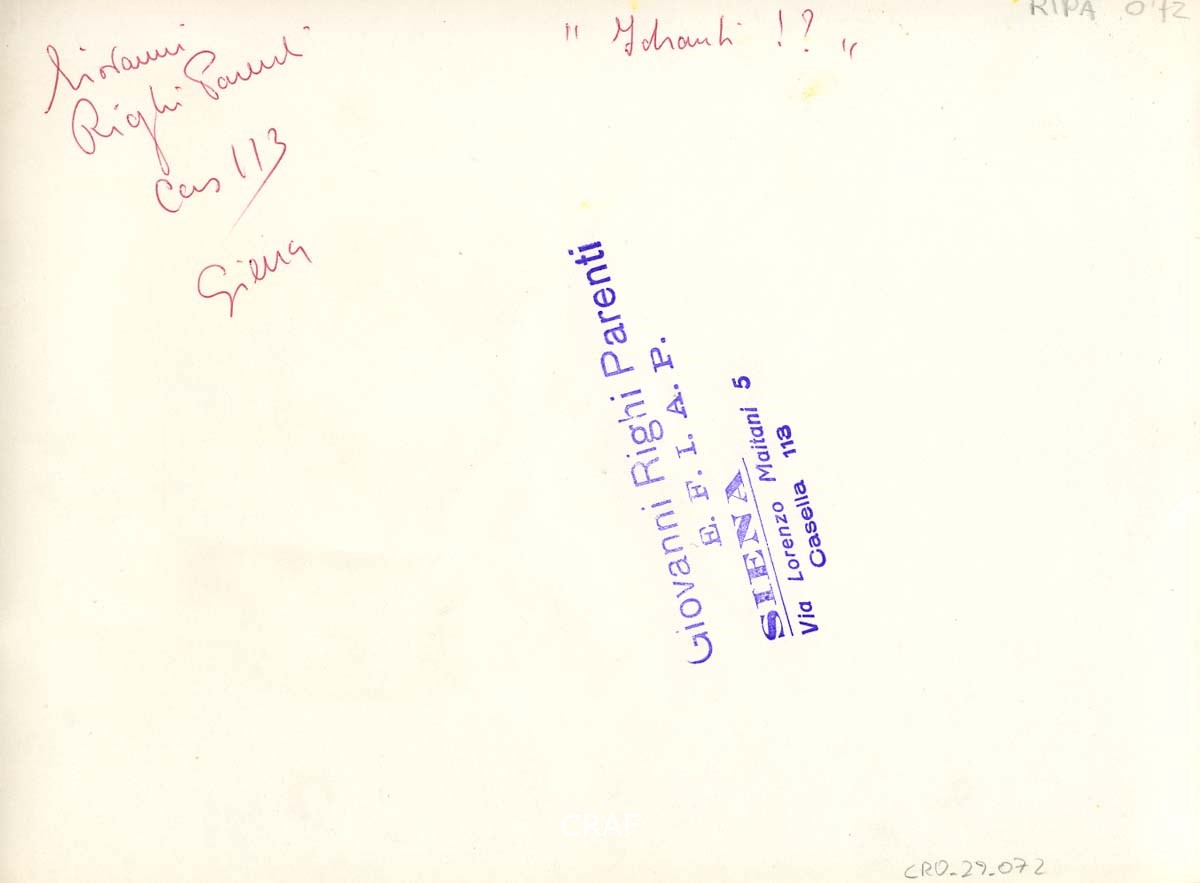 RIPA 072
" Idranti !? "
Giovanni
Righi Parenti
Cas 113
Siena
Giovanni Righi Parenti
E. F. I. A. P.
SIENA
Via Lorenzo Maitani 5
Casella 113
CRAF
CRO_29_072